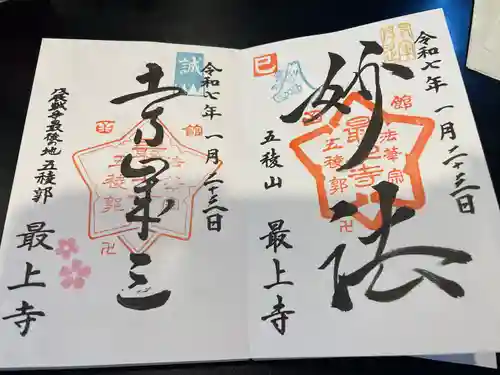 令和七年一月二十三日
妙法
巳
館
法華宗
最上寺
五稜郭
卍
五稜山
最上寺
令和七年一月二十三日
誠
土方歳三
函
館
五稜郭
卍
戊辰戦争最後の地 五稜郭
最上寺